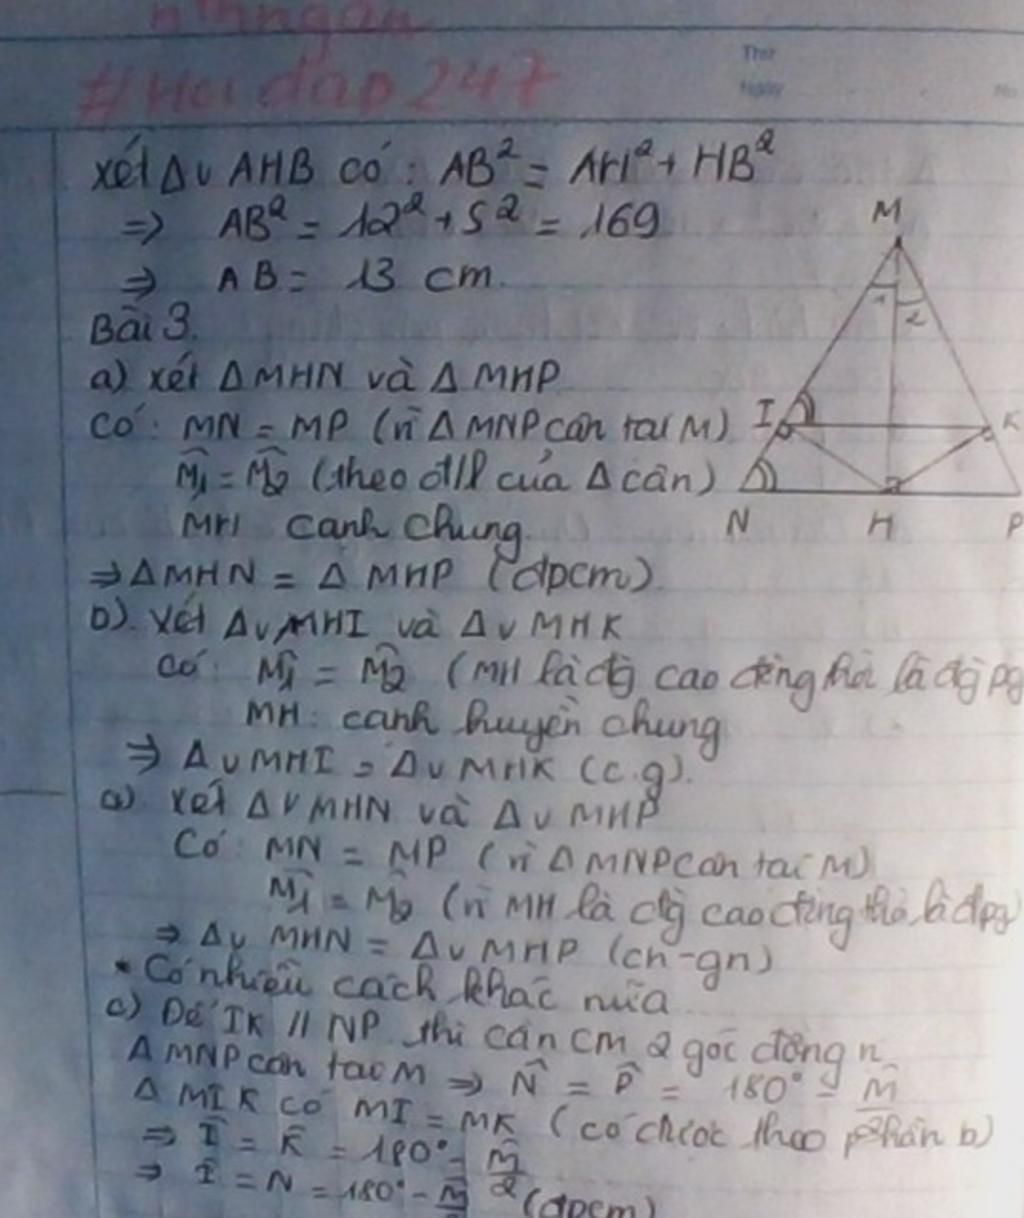 #Hoidap247
Thứ
Ngày
No
xét Δv AHB có: AB² = AH² + HB²
=> AB² = 12² + 5² = 169
=> AB = 13 cm
Bài 3.
a) xét ΔMHN và ΔMHP
Có: MN = MP (vì ΔMNP cân tại M)
M̂₁ = M̂₂ (theo đ/l của Δ cân)
MH cạnh chung
=> ΔMHN = ΔMHP (đpcm)
b). Xét Δv MHI và Δv MHK
Có: M̂₁ = M̂₂ (MH là đg cao đồng thời là đg pg
MH: cạnh huyền chung
=> Δv MHI = Δv MHK (c.g).
a) Xét Δv MHN và Δv MHP
Có: MN = MP (vì ΔMNP cân tại M)
M̂₁ = M̂₂ (vì MH là đg cao đồng thời là đpg)
=> Δv MHN = Δv MHP (ch-gn)
* Có nhiều cách khác nữa
c) Để IK // NP thì cần CM 2 góc đồng
ΔMNP cân tại M => N̂ = P̂ = 180° - M̂/2
ΔMIK có MI = MK (có được theo phần b)
=> Î = K̂ = 180° - M̂/2
=> Î = N = 180° - M̂ (đpcm)
M
1
2
I
K
N
H
P